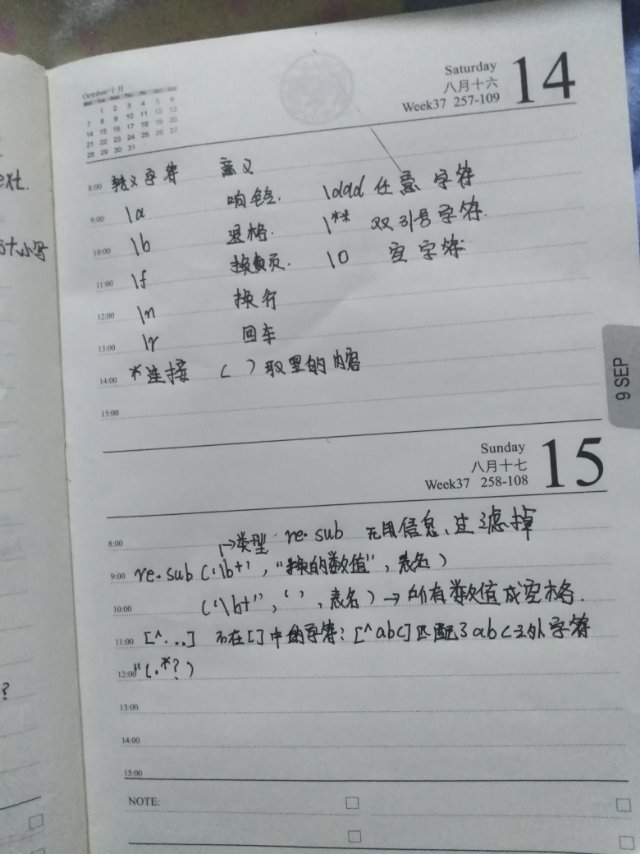 October/十月
Mon Tue Wed Thu Fri Sat Sun
1 2 3 4 5 6
7 8 9 10 11 12 13
14 15 16 17 18 19 20
21 22 23 24 25 26 27
28 29 30 31
Saturday
八月十六
Week37 257-109
14
ext.
st小写
?
8:00 转义字符 意义
9:00 \a 响铃 \ddd 任意字符
10:00 \b 退格. \** 双引号字符.
11:00 \f 换页. \0 空字符
12:00 \n 换行
13:00 \r 回车
14:00 *连接 ( ) 取里的内容
15:00
9 SEP
Sunday
八月十七
Week37 258-108
15
8:00 →类型 re.sub 无用信息、过滤掉
9:00 re.sub ('\b+', "换的数值", 表名)
10:00 ('\b+'', ' ', 表名) → 所有数值成空格.
11:00 [^...] 不在[]中的字符: [^abc]匹配了abc之外字符
12:00 "(.*?)
13:00
14:00
15:00
NOTE: